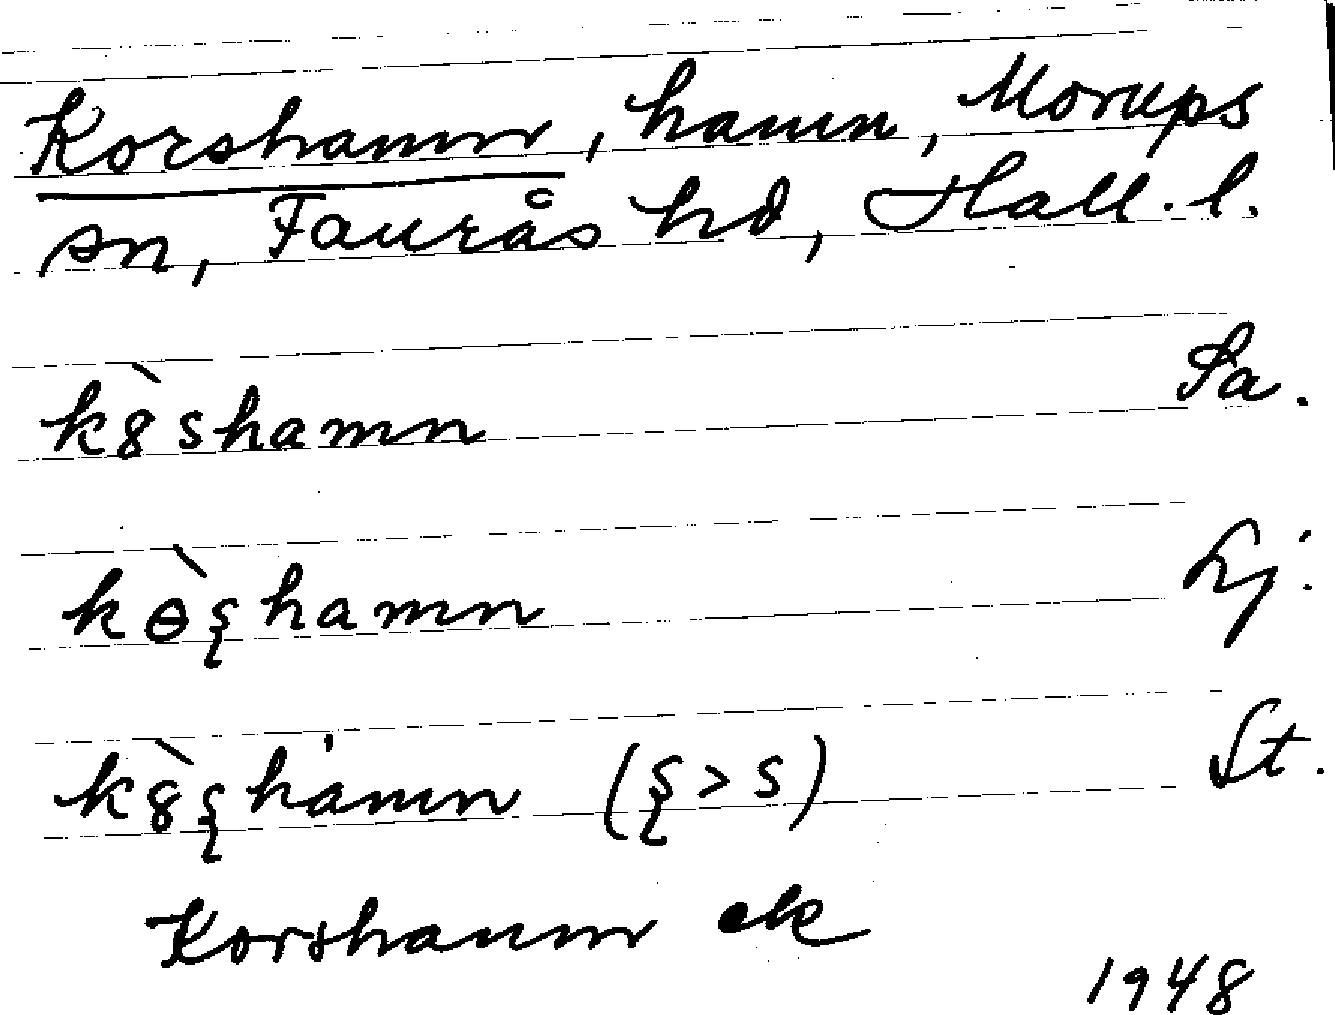 Korshamn, hamn, Morups
sn, Faurås hd, Hall. l.
kȣ̀shamn Sa.
kɵ̀ʂhamn Lj.
kȣ̀ʂha̍mn (ʂ>s) St.
Korshamn ek
1948